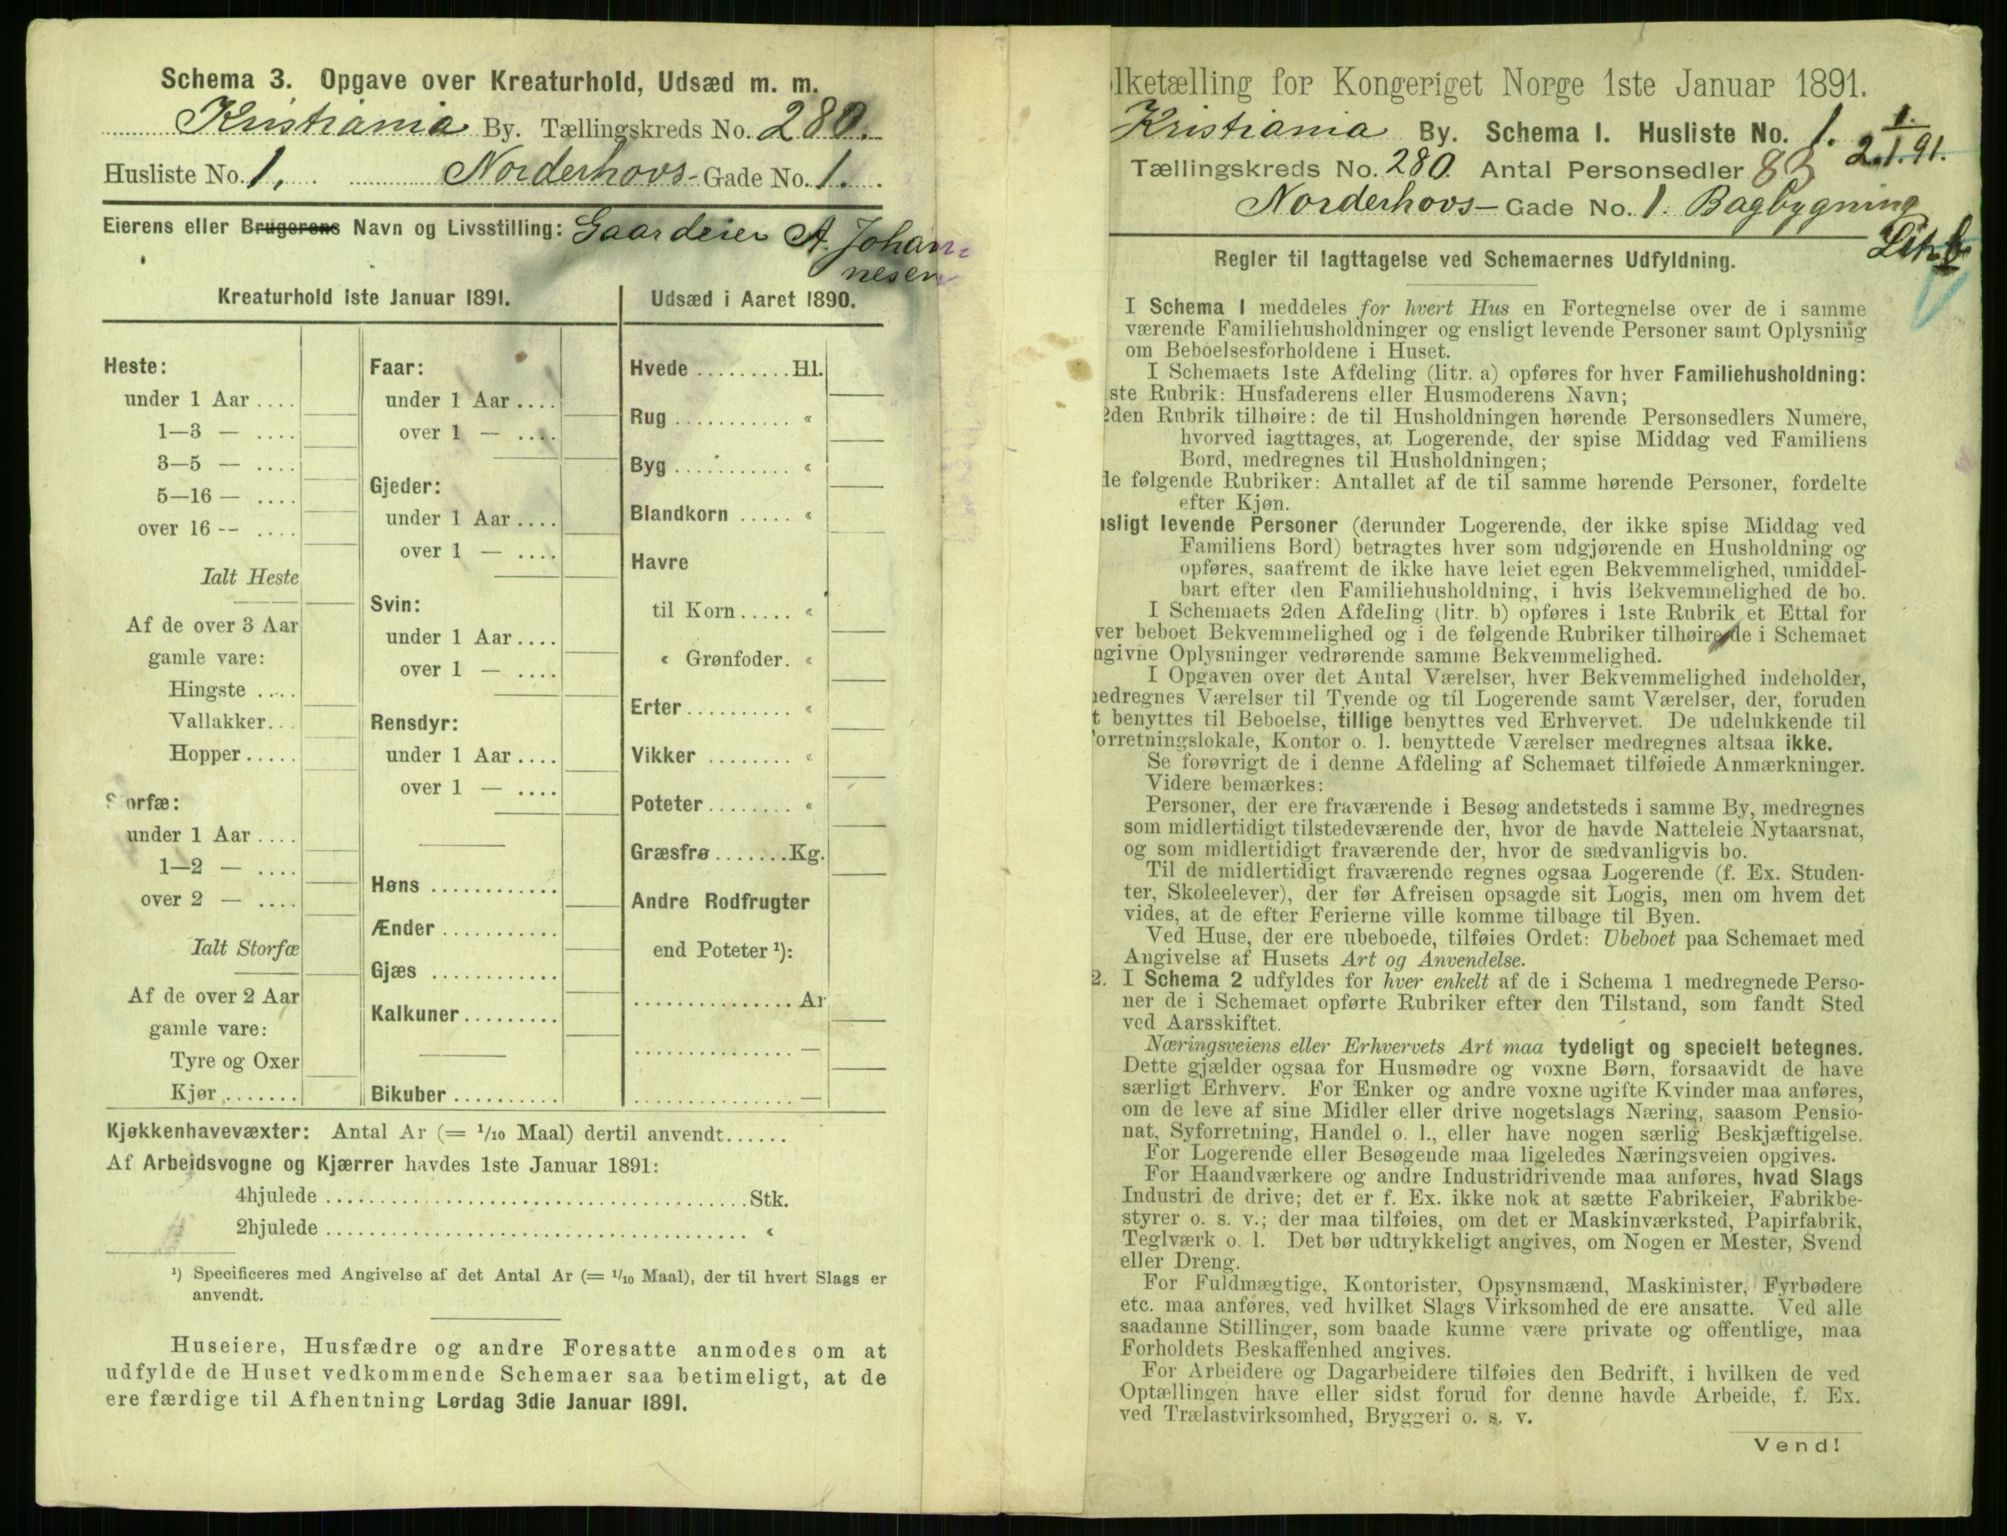 Schema 3. Opgave over Kreaturhold, Udsæd m. m.
Kristiania By. Tællingskreds No. 280.
Husliste No. 1. Norderhovs- Gade No. 1.
Eierens eller Brugerens Navn og Livsstilling: Gaardeier A. Johan-
nesen
Kreaturhold 1ste Januar 1891.
Heste:
under 1 Aar ....
1—3 — ....
3—5 — ....
5—16 — ....
over 16 -- ....
Ialt Heste
Af de over 3 Aar
gamle vare:
Hingste ....
Vallakker...
Hopper.....
Storfæ:
under 1 Aar ....
1—2 — ....
over 2 — ....
Ialt Storfæ
Af de over 2 Aar
gamle vare:
Tyre og Oxer
Kjør .......
Faar:
under 1 Aar ....
over 1 — ....
Gjeder:
under 1 Aar ....
over 1 — ....
Svin:
under 1 Aar ....
over 1 — ....
Rensdyr:
under 1 Aar ....
over 1 — ....
Høns ............
Ænder ...........
Gjæs ............
Kalkuner.........
Bikuber ..........
Udsæd i Aaret 1890.
Hvede .........Hl.
Rug ........... «
Byg ........... «
Blandkorn ..... «
Havre
til Korn ..... «
« Grønfoder. «
Erter.......... «
Vikker ........ «
Poteter........ «
Græsfrø .......Kg.
Andre Rodfrugter
end Poteter ¹):
...............Ar
............... —
............... —
Kjøkkenhavevæxter: Antal Ar (= 1/10 Maal) dertil anvendt......
Af Arbeidsvogne og Kjærrer havdes 1ste Januar 1891:
4hjulede ....................................Stk.
2hjulede .................................... «
¹) Specificeres med Angivelse af det Antal Ar (= 1/10 Maal), der til hvert Slags er
anvendt.
Huseiere, Husfædre og andre Foresatte anmodes om at
udfylde de Huset vedkommende Schemaer saa betimeligt, at de
ere færdige til Afhentning Lørdag 3die Januar 1891.
lketælling for Kongeriget Norge 1ste Januar 1891.
Kristiania By. Schema I. Husliste No. 1. 1.
Tællingskreds No. 280 Antal Personsedler 83 2.1.91.
Norderhovs- Gade No. 1. Bagbygning
Litr. b
Regler til Iagttagelse ved Schemaernes Udfyldning.
I Schema I meddeles for hvert Hus en Fortegnelse over de i samme
værende Familiehusholdninger og ensligt levende Personer samt Oplysning
om Beboelsesforholdene i Huset.
I Schemaets 1ste Afdeling (litr. a) opføres for hver Familiehusholdning:
ste Rubrik: Husfaderens eller Husmoderens Navn;
2den Rubrik tilhøire: de til Husholdningen hørende Personsedlers Numere,
hvorved iagttages, at Logerende, der spise Middag ved Familiens
Bord, medregnes til Husholdningen;
de følgende Rubriker: Antallet af de til samme hørende Personer, fordelte
efter Kjøn.
nsligt levende Personer (derunder Logerende, der ikke spise Middag ved
Familiens Bord) betragtes hver som udgjørende en Husholdning og
opføres, saafremt de ikke have leiet egen Bekvemmelighed, umiddel-
bart efter den Familiehusholdning, i hvis Bekvemmelighed de bo.
I Schemaets 2den Afdeling (litr. b) opføres i 1ste Rubrik et Ettal for
ver beboet Bekvemmelighed og i de følgende Rubriker tilhøire de i Schemaet
ngivne Oplysninger vedrørende samme Bekvemmelighed.
I Opgaven over det Antal Værelser, hver Bekvemmelighed indeholder,
nedregnes Værelser til Tyende og til Logerende samt Værelser, der, foruden
t benyttes til Beboelse, tillige benyttes ved Erhvervet. De udelukkende til
orretningslokale, Kontor o. l. benyttede Værelser medregnes altsaa ikke.
Se forøvrigt de i denne Afdeling af Schemaet tilføiede Anmærkninger.
Videre bemærkes:
Personer, der ere fraværende i Besøg andetsteds i samme By, medregnes
som midlertidigt tilstedeværende der, hvor de havde Natteleie Nytaarsnat,
og som midlertidigt fraværende der, hvor de sædvanligvis bo.
Til de midlertidigt fraværende regnes ogsaa Logerende (f. Ex. Studen-
ter, Skoleelever), der før Afreisen opsagde sit Logis, men om hvem det
vides, at de efter Ferierne ville komme tilbage til Byen.
Ved Huse, der ere ubeboede, tilføies Ordet: Ubeboet paa Schemaet med
Angivelse af Husets Art og Anvendelse.
2. I Schema 2 udfyldes for hver enkelt af de i Schema 1 medregnede Perso-
ner de i Schemaet opførte Rubriker efter den Tilstand, som fandt Sted
ved Aarsskiftet.
Næringsveiens eller Erhvervets Art maa tydeligt og specielt betegnes.
Dette gjælder ogsaa for Husmødre og voxne Børn, forsaavidt de have
særligt Erhverv. For Enker og andre voxne ugifte Kvinder maa anføres,
om de leve af sine Midler eller drive nogetslags Næring, saasom Pensio-
nat, Syforretning, Handel o. l., eller have nogen særlig Beskjæftigelse.
For Logerende eller Besøgende maa ligeledes Næringsveien opgives.
For Haandværkere og andre Industridrivende maa anføres, hvad Slags
Industri de drive; det er f. Ex. ikke nok at sætte Fabrikeier, Fabrikbe-
styrer o. s. v.; der maa tilføies, om det er Maskinværksted, Papirfabrik,
Teglværk o. l. Det bør udtrykkeligt angives, om Nogen er Mester, Svend
eller Dreng.
For Fuldmægtige, Kontorister, Opsynsmænd, Maskinister, Fyrbødere
etc. maa anføres, ved hvilket Slags Virksomhed de ere ansatte. Ved alle
saadanne Stillinger, som baade kunne være private og offentlige, maa
Forholdets Beskaffenhed angives.
For Arbeidere og Dagarbeidere tilføies den Bedrift, i hvilken de ved
Optællingen have eller sidst forud for denne havde Arbeide, f. Ex.
ved Trælastvirksomhed, Bryggeri o. s. v.
Vend!